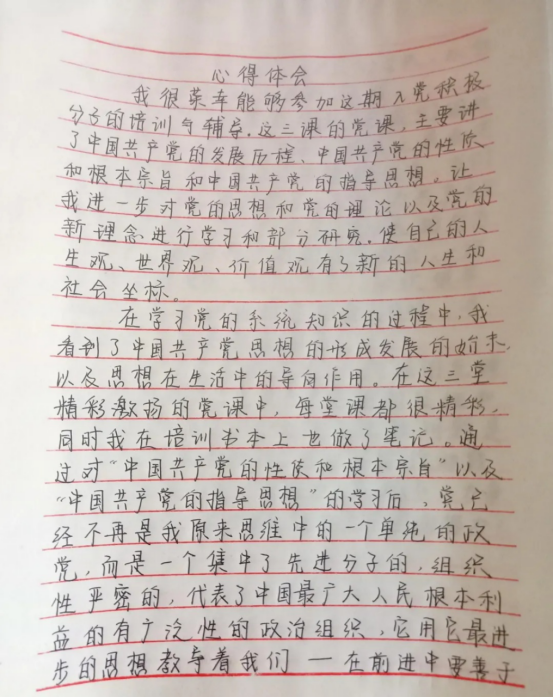 心得体会
我很荣幸能够参加这期入党积极
分子的培训与辅导。这三课的党课,主要讲
了中国共产党的发展历程、中国共产党的性质
和根本宗旨和中国共产党的指导思想。让
我进一步对党的思想和党的理论以及党的
新理念进行学习和部分研究。使自己的人
生观、世界观、价值观有了新的人生和
社会坐标。
在学习党的系统知识的过程中,我
看到了中国共产党思想的形成发展的始末,
以及思想在生活中的导向作用。在这三堂
精彩激扬的党课中,每堂课都很精彩,
同时我在培训书本上也做了笔记。通
过对“中国共产党的性质和根本宗旨”以及
“中国共产党的指导思想”的学习后,党已
经不再是我原来思维中的一个单纯的政
党,而是一个集中了先进分子的,组织
性严密的,代表了中国最广大人民根本利
益的有广泛性的政治组织,它用它最进
步的思想教导着我们——在前进中要善于